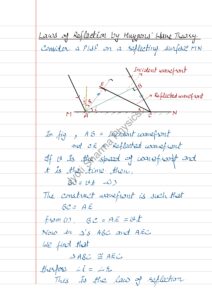 Laws of Reflection by Huygens' Wave Theory
Consider a PWF on a reflecting surface MN
Incident wavefront
Reflected wavefront
M
A
C
N
In fig, AB = Incident wavefront
and CE = Reflected wavefront
If v is the speed of wavefront and
t is the time then
BC = vt —(1)
The construct wavefront is such that
BC = AE
from (1) BC = AE = vt
Now in Δ's ABC and AEC
We find that
Δ ABC ≅ AEC
therefore ∠i = ∠r
This is the law of reflection